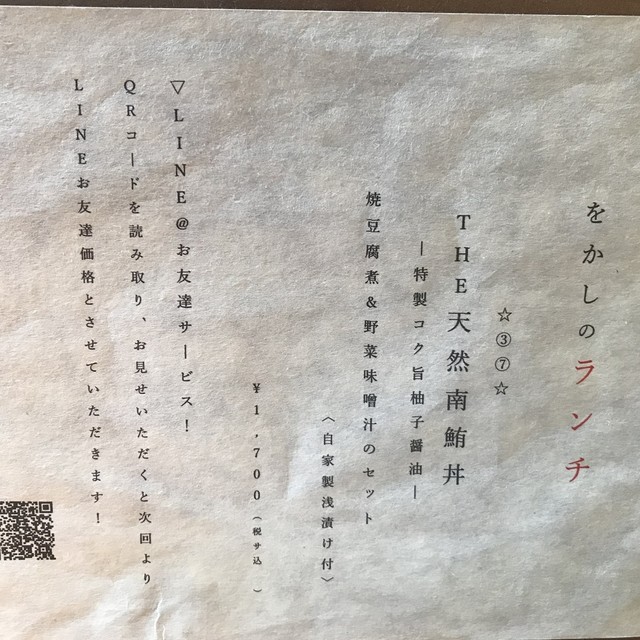 をかしのランチ
☆③⑦☆
THE天然南鮪丼
―特製コク旨柚子醤油―
焼豆腐煮&野菜味噌汁のセット
〈自家製浅漬け付〉
¥1,700（税サ込）
▽LINE@お友達サービス!
QRコードを読み取り、お見せいただくと次回より
LINEお友達価格とさせていただきます!